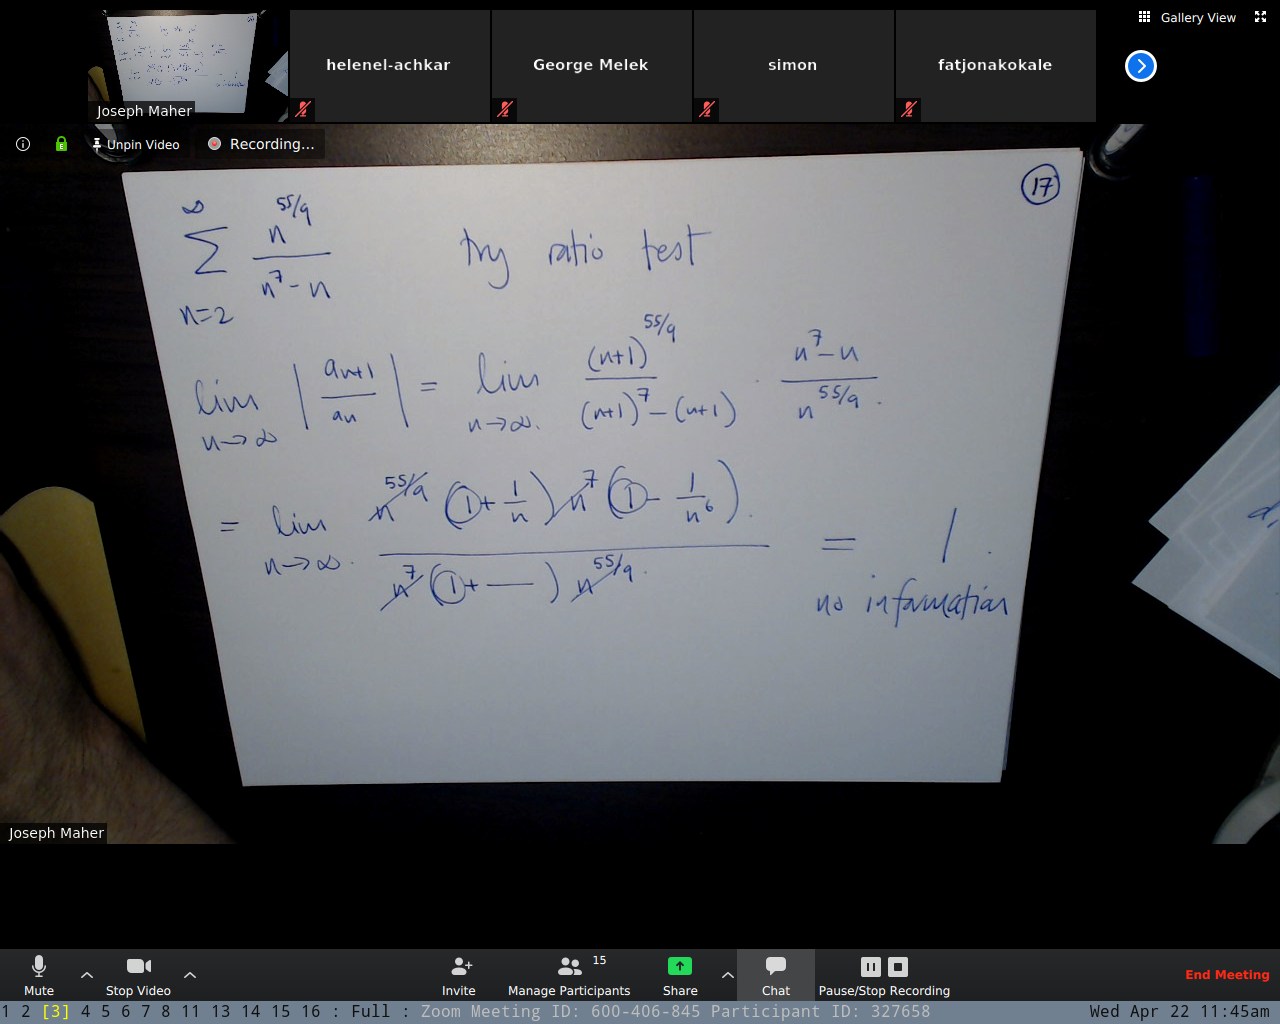 Gallery View
helenel-achkar
George Melek
simon
fatjonakokale
Joseph Maher
Unpin Video
Recording...
17
∞ ∑ n=2 n^{55/9} / (n^7 - n) try ratio test
lim n→∞ | a_{n+1} / a_n | = lim n→∞. (n+1)^{55/9} / ((n+1)^7 - (n+1)) · (n^7 - n) / n^{55/9} .
= lim n→∞. n^{55/9} (1 + 1/n) n^7 (1 - 1/n^6) . / n^7 (1 + —) n^{55/9} . = 1 .
no information
Joseph Maher
15
Mute
Stop Video
Invite
Manage Participants
Share
Chat
Pause/Stop Recording
End Meeting
1 2 [3] 4 5 6 7 8 11 13 14 15 16 : Full : Zoom Meeting ID: 600-406-845 Participant ID: 327658 Wed Apr 22 11:45am